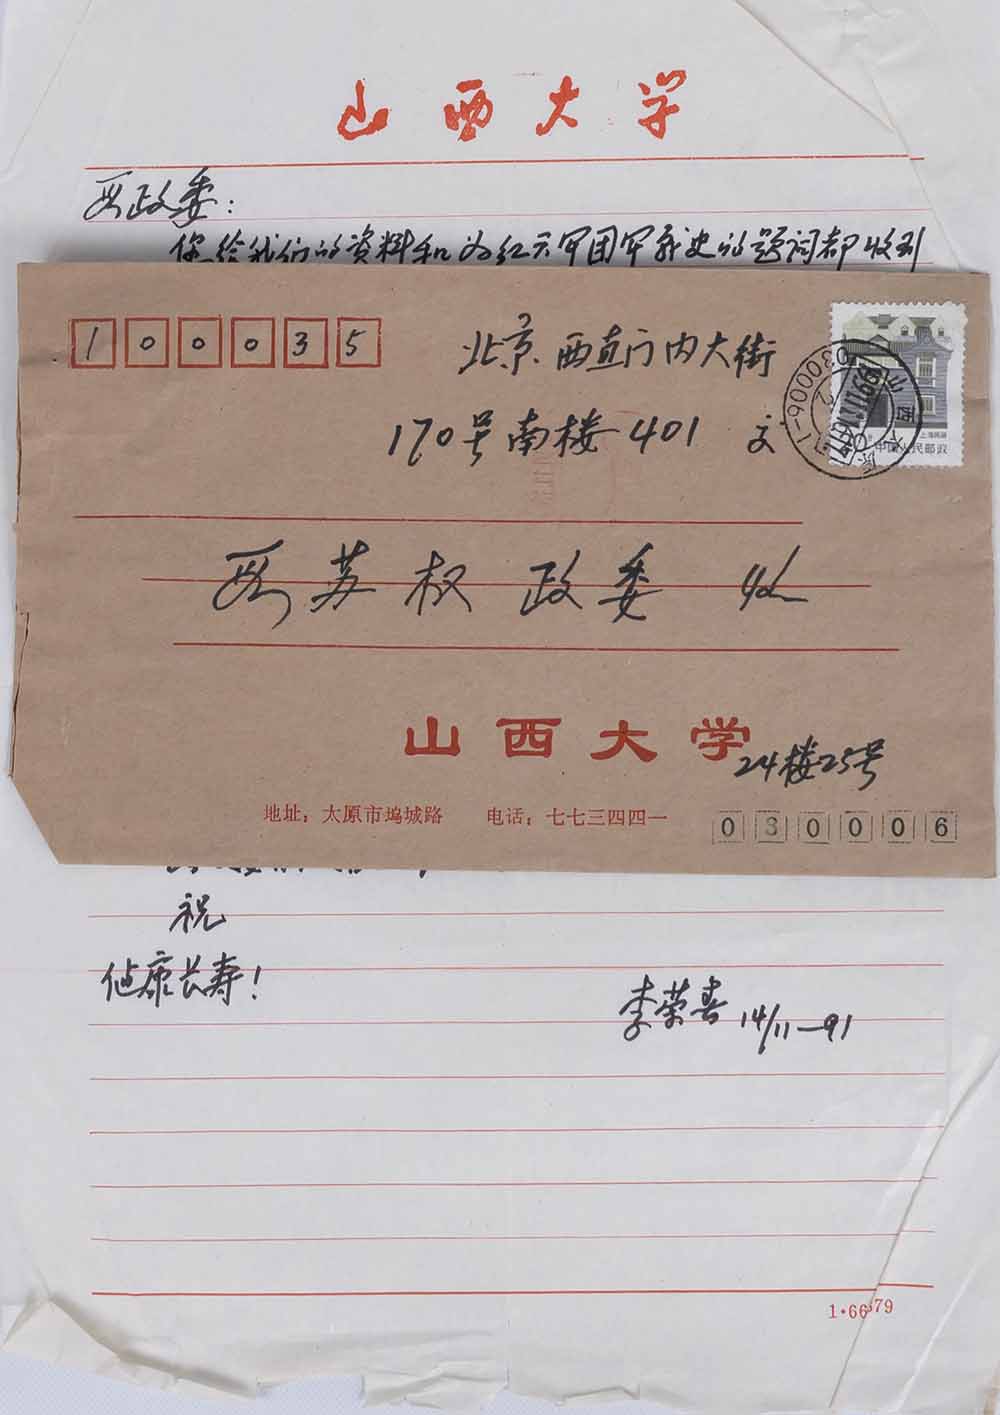 山西大学
贾政委：
你给我们的资料和为红六军团军战史的题词都收到
100035
北京西直门内大街
170号南楼401
上海民居
中国人民邮政
苏权政委 收
山西大学
24楼25号
地址：太原市坞城路 电话：七七三四四一
030006
祝
健康长寿！
李荣春 14/11—91
1·66